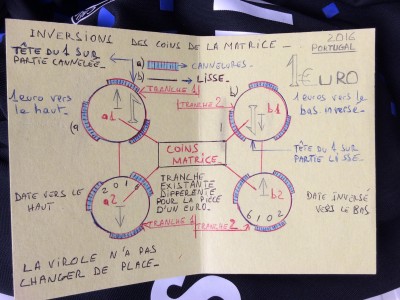 INVERSIONS DES COINS DE LA MATRICE_
2016
PORTUGAL
TÊTE DU 1 SUR
PARTIE CANNELÉE_
a) CANNELURES_
b) LISSE_
1€URO
TRANCHE 1
TRANCHE 2
1 euro vers
le haut_
(a
a1
b)
b1
1 euros vers le
bas inverse_
COINS
MATRICE
TÊTE DU 1 SUR
PARTIE LISSE_
DATE VERS LE
HAUT
2016
a2
TRANCHE
EXISTANTE
DIFFERENTE
POUR LA PIÈCE
D'UN EURO_
b2
6102
DATE INVERSÉ
VERS LE BAS
TRANCHE 1
TRANCHE 2
LA VIROLE N'A PAS
CHANGER DE PLACE_